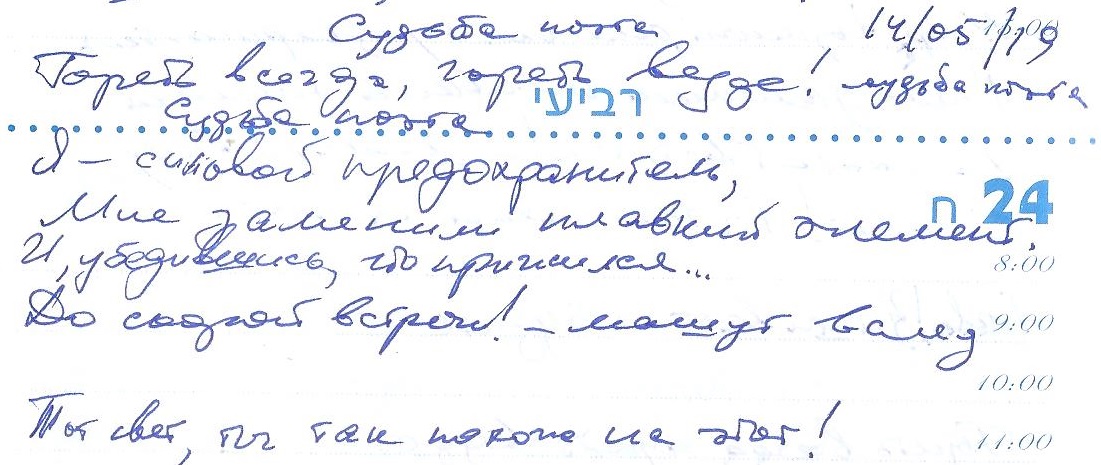 Судьба поэта 14/05/19
Гореть всегда, гореть везде! судьба поэта
Судьба поэта רביעי
Я – силовой предохранитель,
Мне заменили плавкий элемент. ח 24
И, убедившись, что прижился... 8:00
До скорой встречи! – машут вслед 9:00
10:00
Тот свет, ты так похож на этот! 11:00